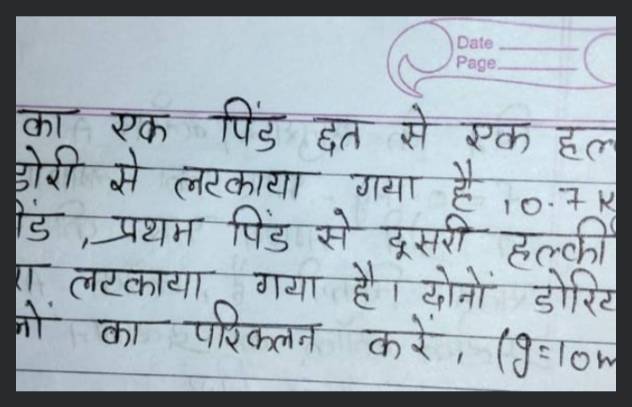 Date
Page
का एक पिंड छत से एक
डोरी से लटकाया गया है 10.7
पिंड, प्रथम पिंड से दूसरी हल्की
लटकाया गया है। दोनों
का परिकलन करें, (g=10